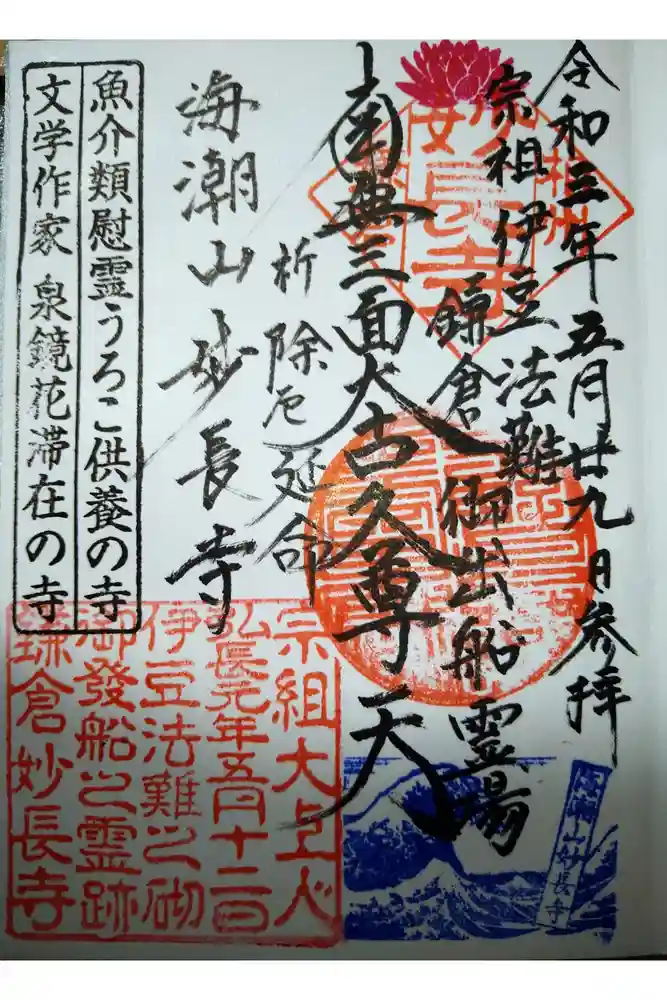 令和三年五月廿九日参拝
宗祖伊豆法難
鎌倉御出船霊場
南無三面大古久尊天
祈除厄延命
海潮山妙長寺
魚介類慰霊うろこ供養の寺
文学作家 泉鏡花滞在の寺
妙長寺
宗組大上人
弘長元年五月十二日
伊豆法難之砌
御發船之霊跡
鎌倉妙長寺
海潮山妙長寺